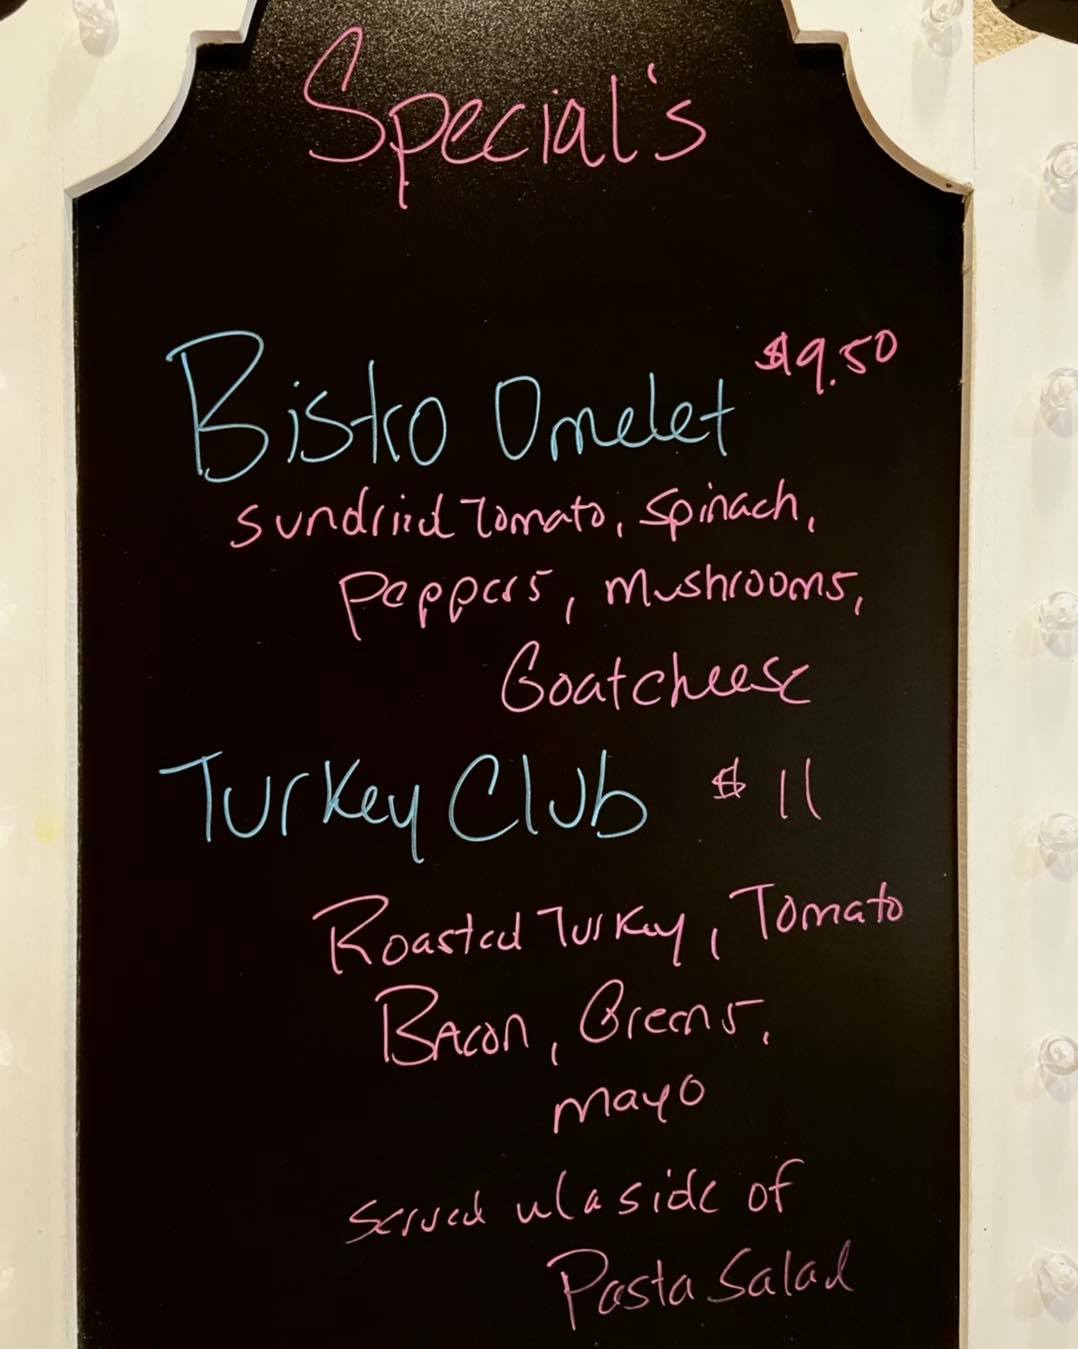 Special's
Bistro Omelet $9.50
sundried Tomato, Spinach,
Peppers, mushrooms,
Goat cheese
Turkey Club $11
Roasted Turkey, Tomato
Bacon, Greens,
mayo
served w/a side of
Pasta Salad